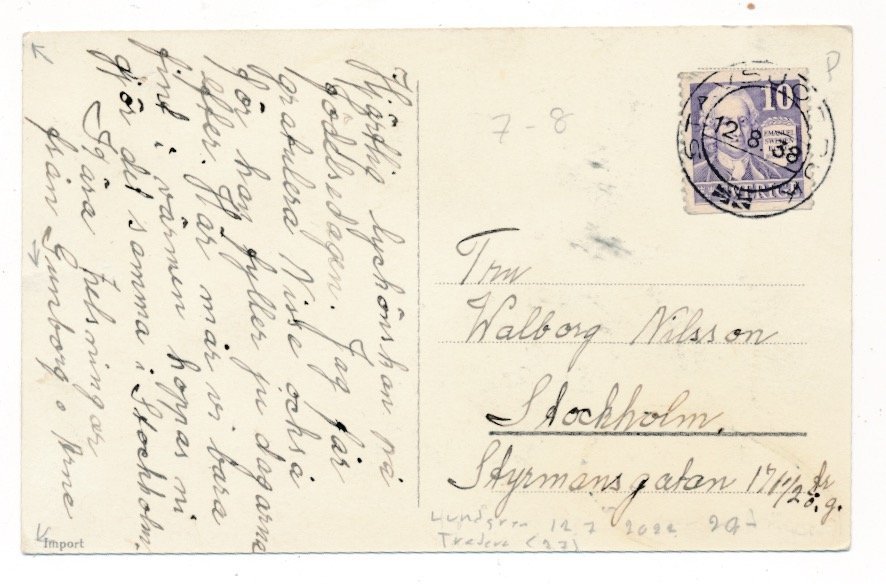 Hjärtlig lyckönskan på
födelsedagen. Jag får
gratulera Nisse också
för han fyller ju dagarne
efter. Här mår vi bara
fint i värmen hoppas ni
gör det samma i Stockholm.
Kjära helsningar
från Gunborg o Arne
Import
7-8
P
10
EMANUEL
SVERIGE
12.8.38
Fru
Walborg Nilsson
Stockholm.
Styrmansgatan 17
ö.g.
Lundgren 12 7 2022 20